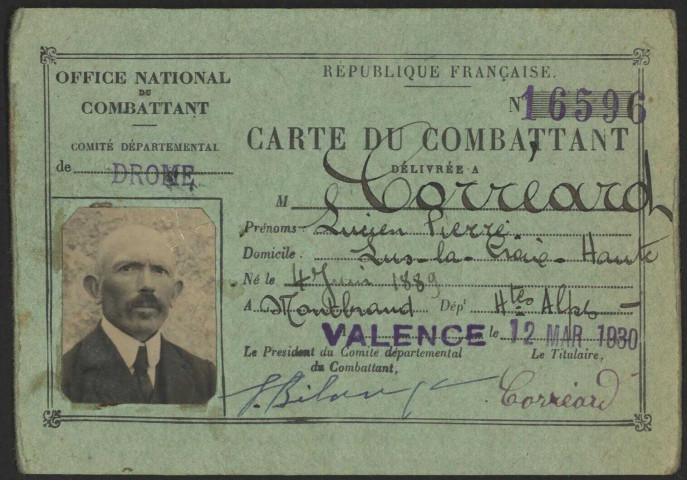 OFFICE NATIONAL
DU
COMBATTANT
COMITÉ DÉPARTEMENTAL
de DROME
REPUBLIQUE FRANÇAISE.
N° 16596
CARTE DU COMBATTANT
DÉLIVRÉE A
M Corréard
Prénoms Lucien Pierre
Domicile : Lus-la-Croix-Haute
Né le 4 Juin 1889
A Montbrand Dépt Htes Alpes
VALENCE le 12 MAR 1930
Le President du Comité départemental
du Combattant,
Le Titulaire,
Corréard